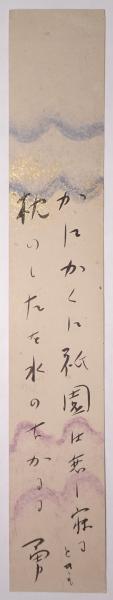 かにかくに祇園は恋し寐る
ときも
枕のしたを水のながるる
勇